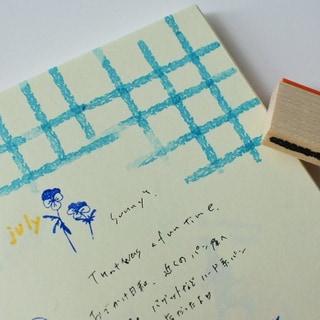 july
sunny.
That was a fun time.
おでかけ日和、近くのパン屋へ
バゲットなどハード系パン